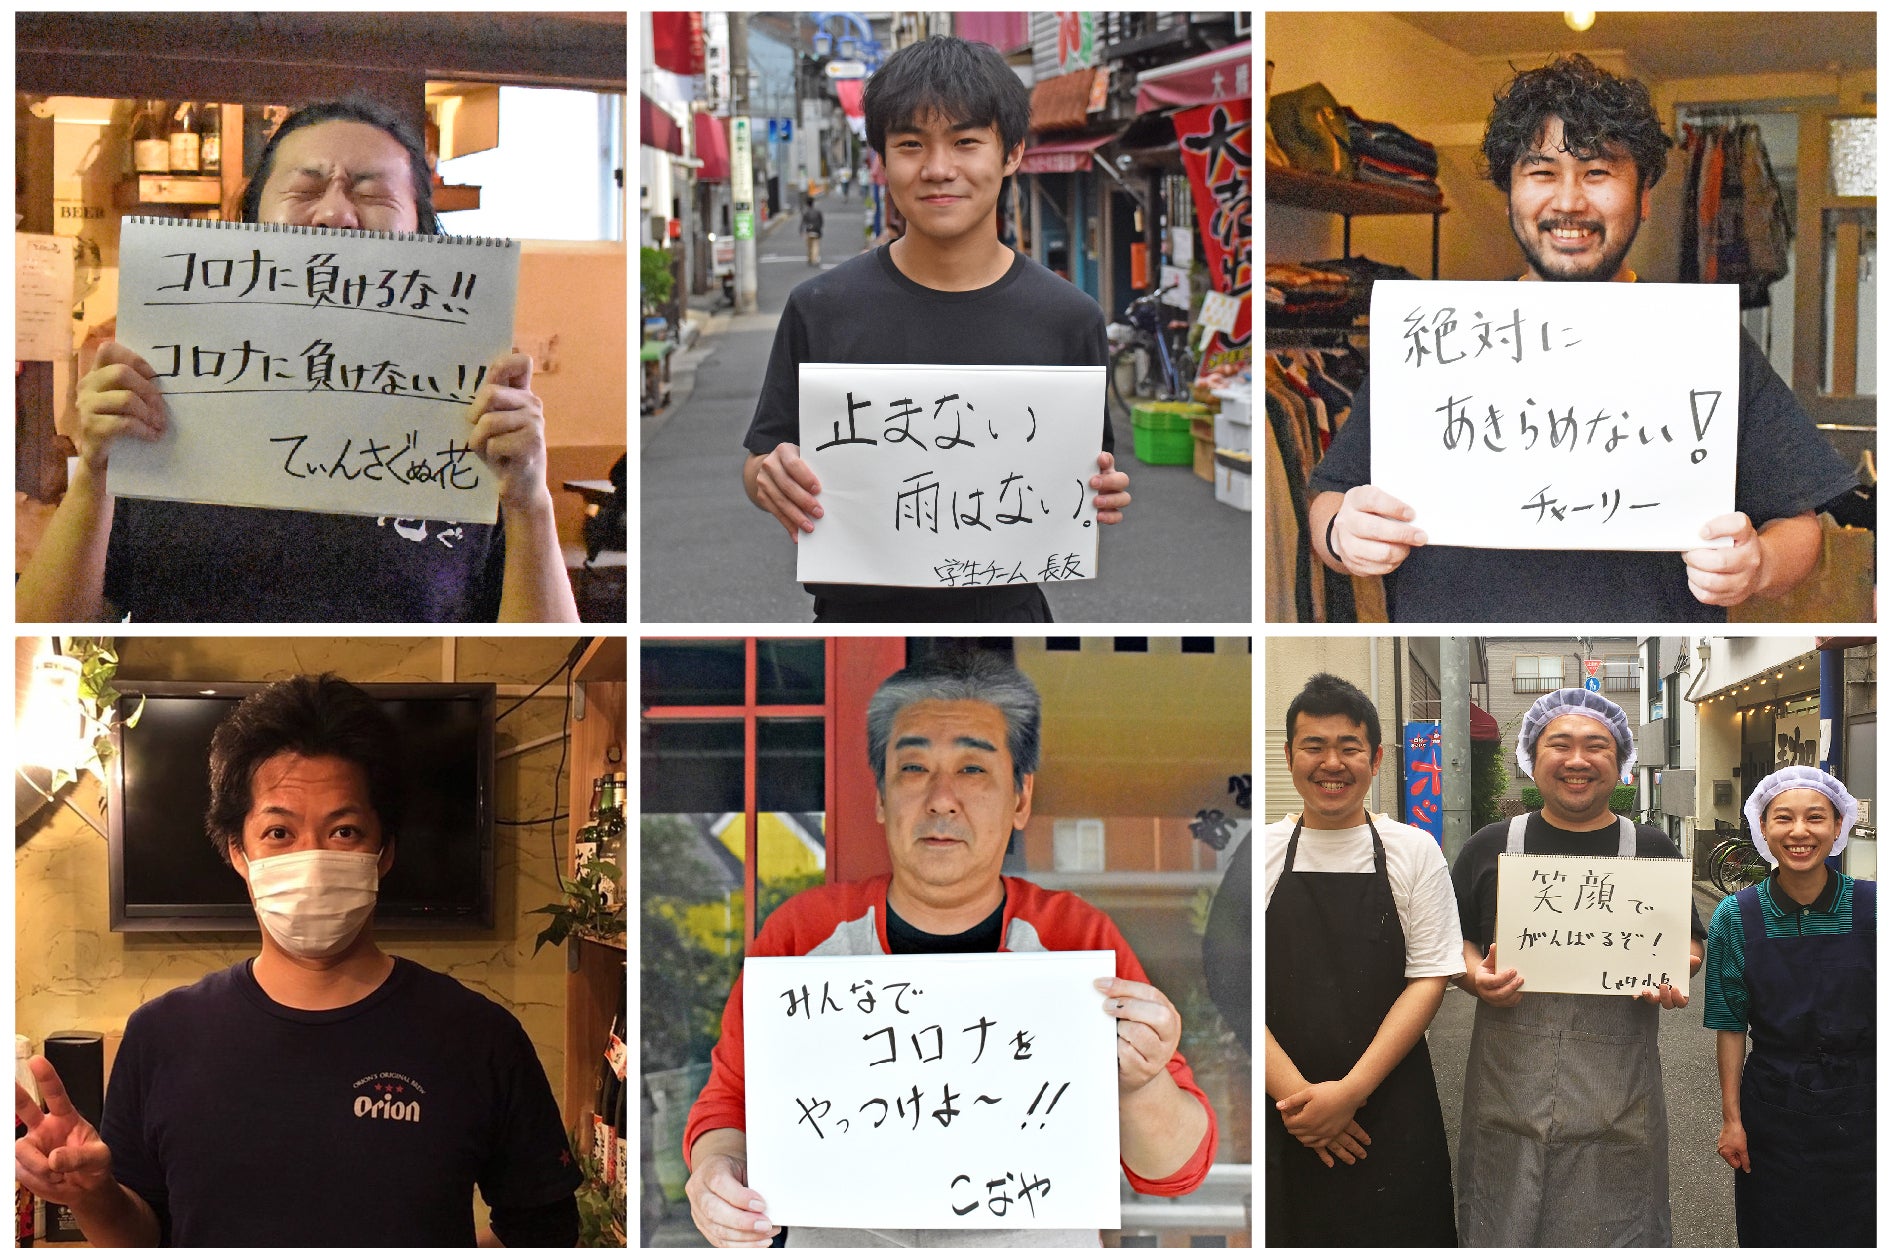 BEER
コロナに負けるな!!
コロナに負けない!!
てぃんさぐぬ花
大売
止まない
雨はない。
学生チーム 長友
絶対に
あきらめない!
チャーリー
ORION'S ORIGINAL BREW
Orion
みんなで
コロナを
やっつけよ〜!!
こなや
笑顔で
がんばるぞ!
しゃけ小島